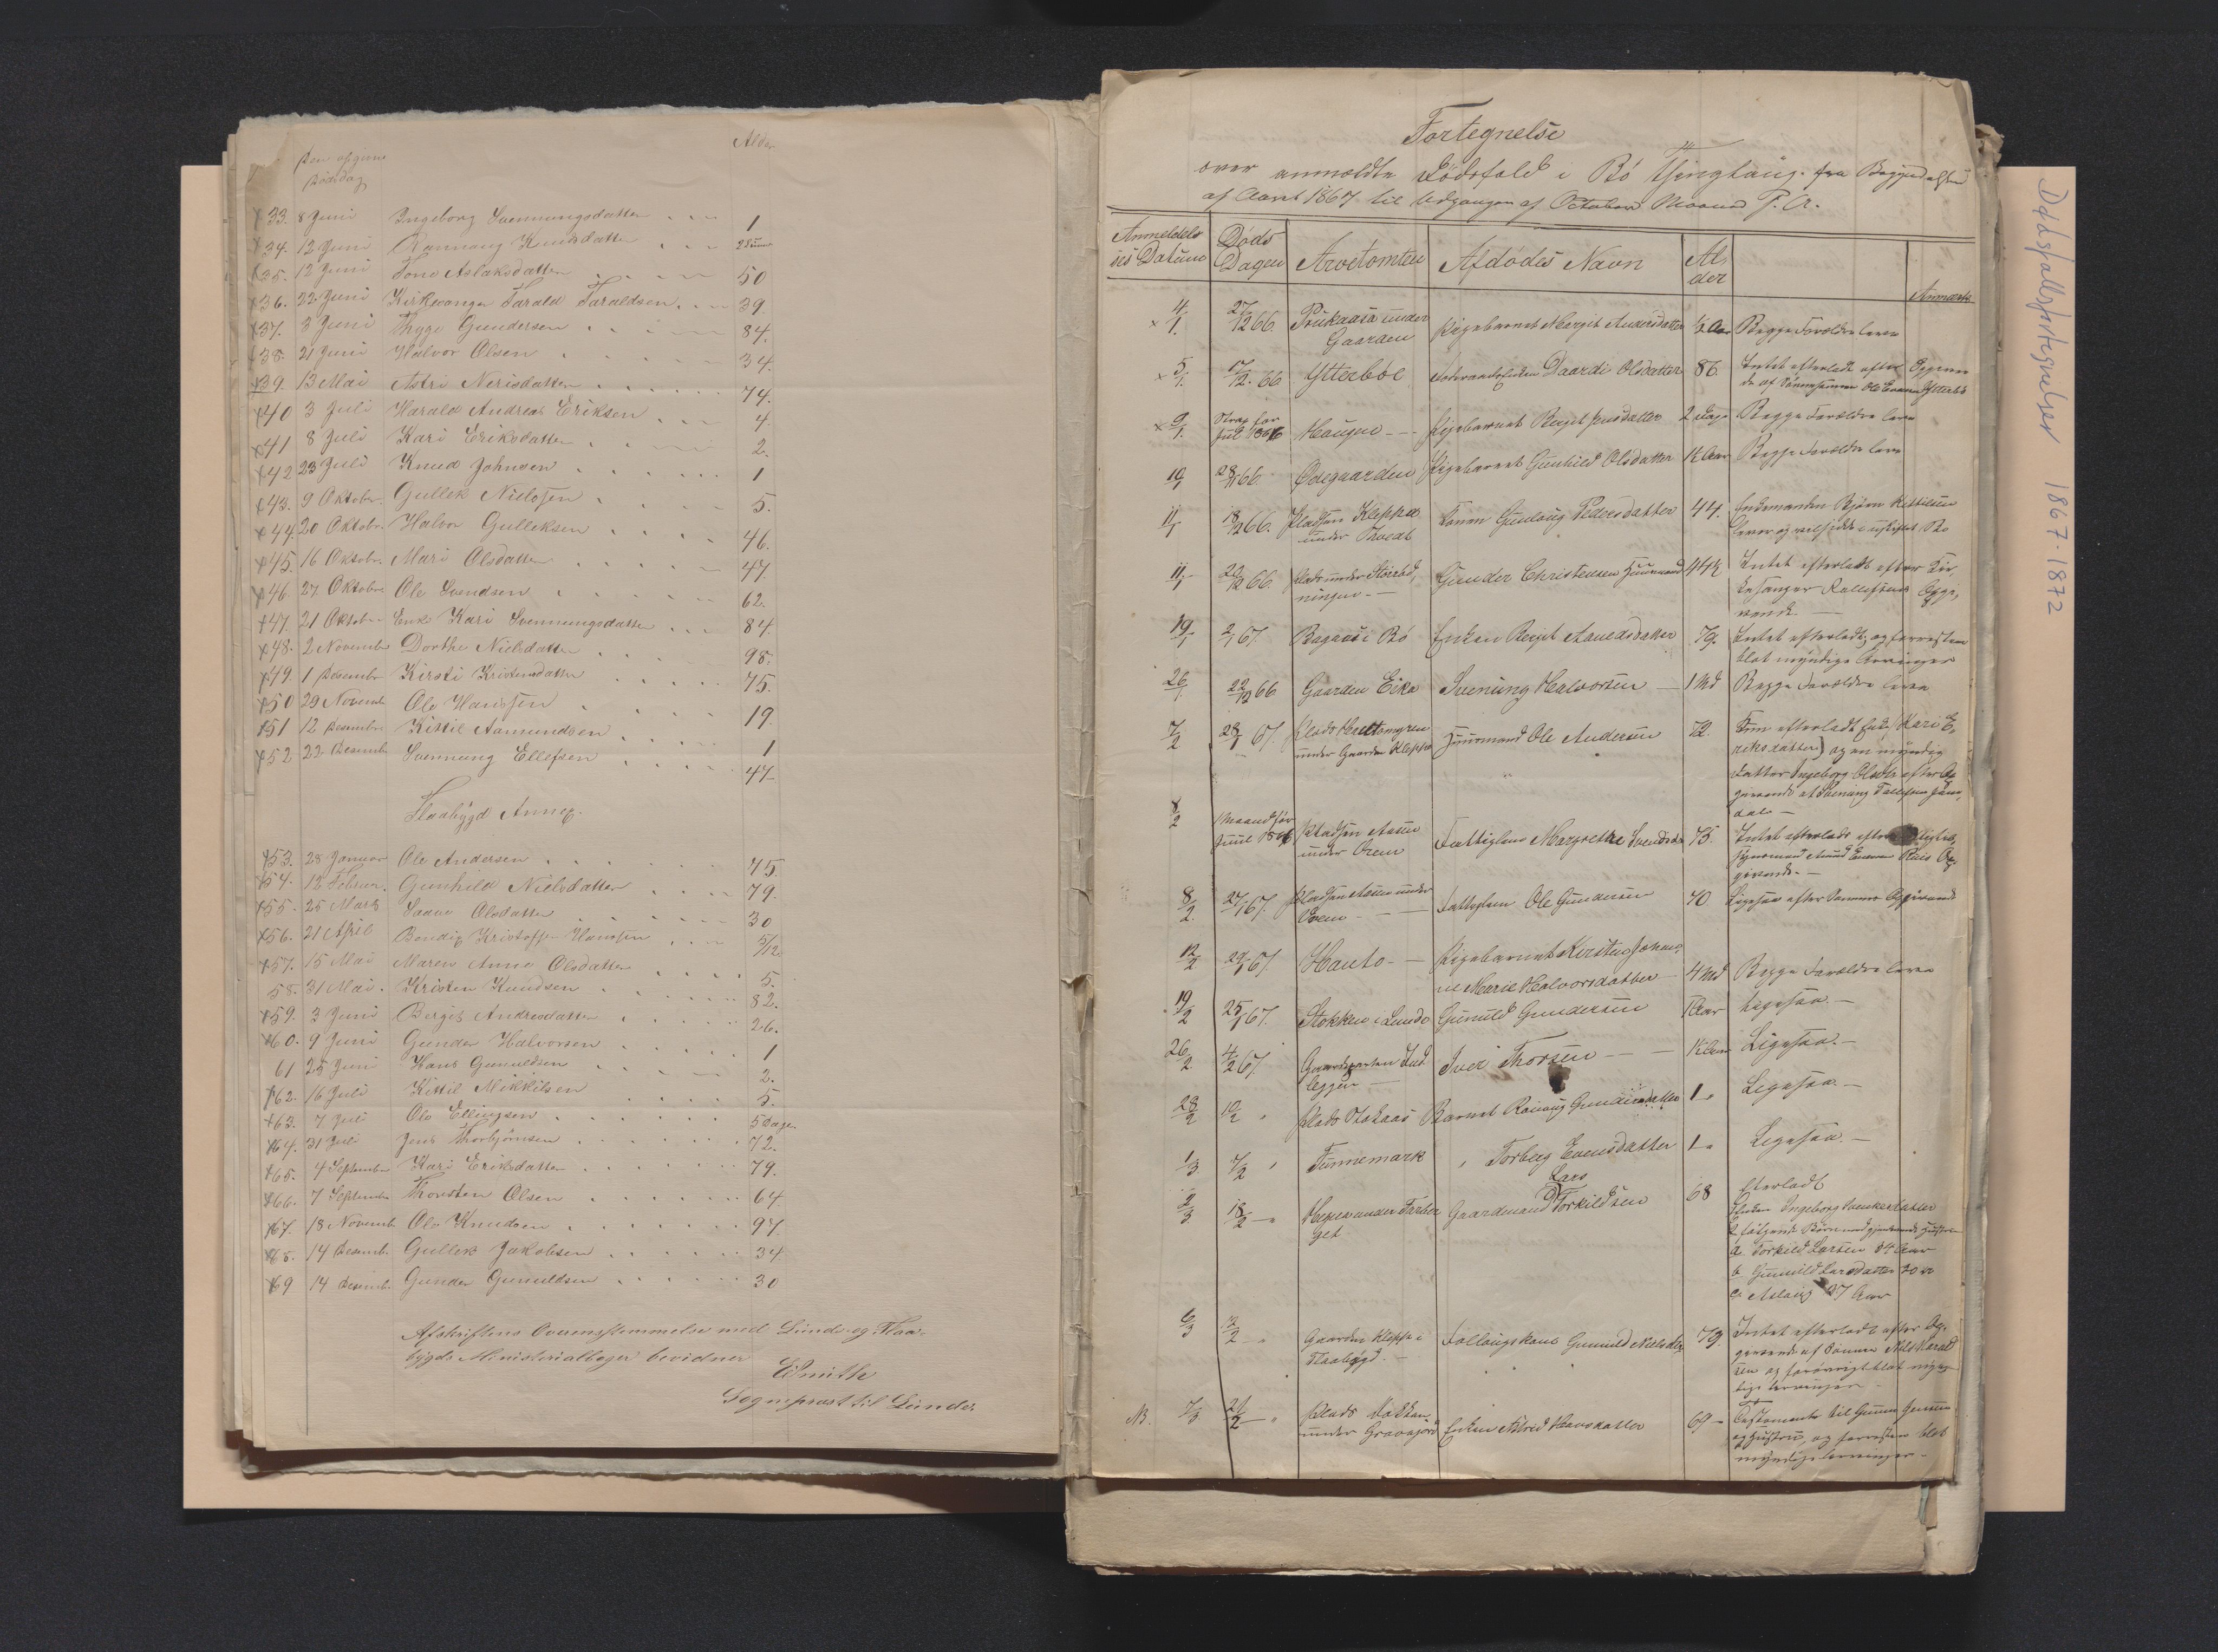 Alder
Den opgivne
Dødsdag
33. 8 Juni Ingeborg Svennungsdatter 1
34. 12 Juni Rannaug Knudsdatter
35. 12 Juni Tone Aslaksdatter 50
36. 22 Juni Kirkesanger Tarald Taraldsen 39
37. 3 Juni Thyge Gundersen 84.
38. 21 Juni Halvor Olsen 34.
39. 13 Mai Astri Nerisdatter 74.
40 3 Juli Harald Andreas Eriksen 4.
41 8 Juli Kari Eriksdatter 2.
42 23 Juli Knud Johnsen 1
43. 9 Oktobr. Gullek Nielssen 5.
44. 20 Oktobr. Halvor Gulleksen 46.
45. 16 Oktobr. Mari Olsdatter 47.
46. 27 Oktobr. Ole Svendsen 62.
47. 21 Oktobr. Enke Kari Svennungsdatter 84.
48. 2 Novembr Dorthe Nielsdatter 98.
49. 1 Desembr Kirsti Kristensdatter 75.
50 29 Novemb. Ole Hanssen 19.
51 12 Desembr Kittil Aamundsen 1
52 22 Desemb. Svennung Ellefsen 47
Flaabygd Annex.
53. 28 Januar Ole Andersen 75.
54. 12 Februar. Gunhild Nielsdatter 79.
55. 25 Marts Saave Olsdatter 30
56. 21 April Bendix Kristoffer Hanssen 5/12.
57. 15 Mai Maren Anne Olsdatter 5.
58. 31 Mai. Kristen Knudsen 82.
59. 3 Juni Birgit Andreasdatter 26.
60. 9 Juni Gunder Halvorsen 1
61 25 Juni Hans Gunuldsen 2.
62. 16 Juli Kittil Mikkelsen 5.
63. 7 Juli Ole Ellingsen 5 Dage
64. 31 Juli Jens Thorbjørnsen 72.
65. 4 September Kari Eriksdatter 79.
66. 7 September Thorsten Olsen 64
67. 18 Novemb. Ole Knudsen 97.
68. 14 Desemb. Gullek Jakobsen 34
69 14 Desemb. Gunder Gunuldsen 30
Afskriftens Overensstemmelse med Lunde og Flaa-
bygds Ministerialbøger bevidner
ESmith
Sogneprest til Lunde.
Fortegnelse
over anmeldte Dødsfald i Bø Thinglaug fra Begyndelsen
af Aaret 1867 til Udgangen af October Maaned F. A.
Anmeldel-
ses Datum Døds
Dagen Arvetomten Afdødes Navn Al-
der Anmærk
4/1. 27/12 66 under
Gaarden Pigebarnet Margit Andersdatter 1/2 Aar Begge Forældre leve
5/1. 17/12. 66 Ytterbøe Daardi Olsdatter 86 Intet efterladt efter Opgiven
de af Sønnesønnen Ole Evensen Ytterbø
9/1. Strax før
Jul 1866 Haugen Pigebarnet Birgit Jensdatter 2 Dage Begge Forældre leve
10/1 28/12 66 Ødegaarden Pigebarnet Gunhild Olsdatter 1½ Aar Begge Forældre leve
11/1 18/12 66. Pladsen Kleppen
under Konen Gunlaug Pedersdatter 44. Enkemanden Bjørn Kittilsen
lever og i uskiftet Bo
11/1 22/12 66. Plads under
ningen Gunder Christensen Huusmand Intet efterladt efter Kir-
kesanger Rollefsens Opgi-
vende
19/1 2/1 67. Bagaas i Bø Enken Birgit Aanesdatter 79. Intet efterladt, og forresten
blot myndige Arvinger
26/1. 22/12 66 Gaarden Eika Svenung Halvorsen 1 Md Begge Forældre leve
7/2 28/1 67. Plads
under Gaarden Kleppe Huusmand Ole Andersen 72. Enke (Kari E-
riksdatter) og en myndig
Datter Ingeborg Olsdtr efter Op-
givende af Svenung Tallefsen
dal
8/2 1 Maaned før
Juul 1866 Pladsen Aasen
under Oren Fattiglem Margrethe Svendsdtr 75. Intet efterladt efter
Opgi-
givende.
8/2. 27/1 67. Pladsen Aasen under
Oren Fattiglem Ole Gundersen 70 Ligesaa efter Sammes Opgivende
12/2 29/1 67 Hauto Pigebarnet Kirsten Johan-
ne Marie Halvorsdatter 4 Md Begge Forældre leve
19/2 25/1 67. Stokken i Lunde Gunuld Gundersen 1 Aar Ligesaa.
26/2 4/2 67. Gaardparten Lud-
leggen Iver Thorsen 1½ Aar Ligesaa.
28/2 10/2 " Plads Barnet Gundersdatter 1 " Ligesaa.
1/3 7/2 " Tinnemark " Torberg Evensdatter 1 " Ligesaa.
2/3 18/2 " under Farber
get Gaardmand Lars Torkildsen 68 Efterladt
Enken Ingeborg
& følgende Børn med gjenlevende Hustru
a Torkild Larsen 34 Aar
b Gunnild Larsdatter 30 "
c Aslaug 27 Aar
6/3 12/2 " Gaarden Kleppe i
Flaabygd. Follaugskone Gunnild Nielsdtr 79. Intet efterladt efter Op-
givende af Sønnen Nils Harald
sen og forøvrigt blot myn-
dige Arvinger
NB. 7/3. 21/2 " Plads
under Gravajord Enken Alvild Hansdatter 69 Testamente til Gunnr Jensen
og Hustru, og forresten blot
myndige Arvinger
Dødsfallsfortegnelser 1867-1872